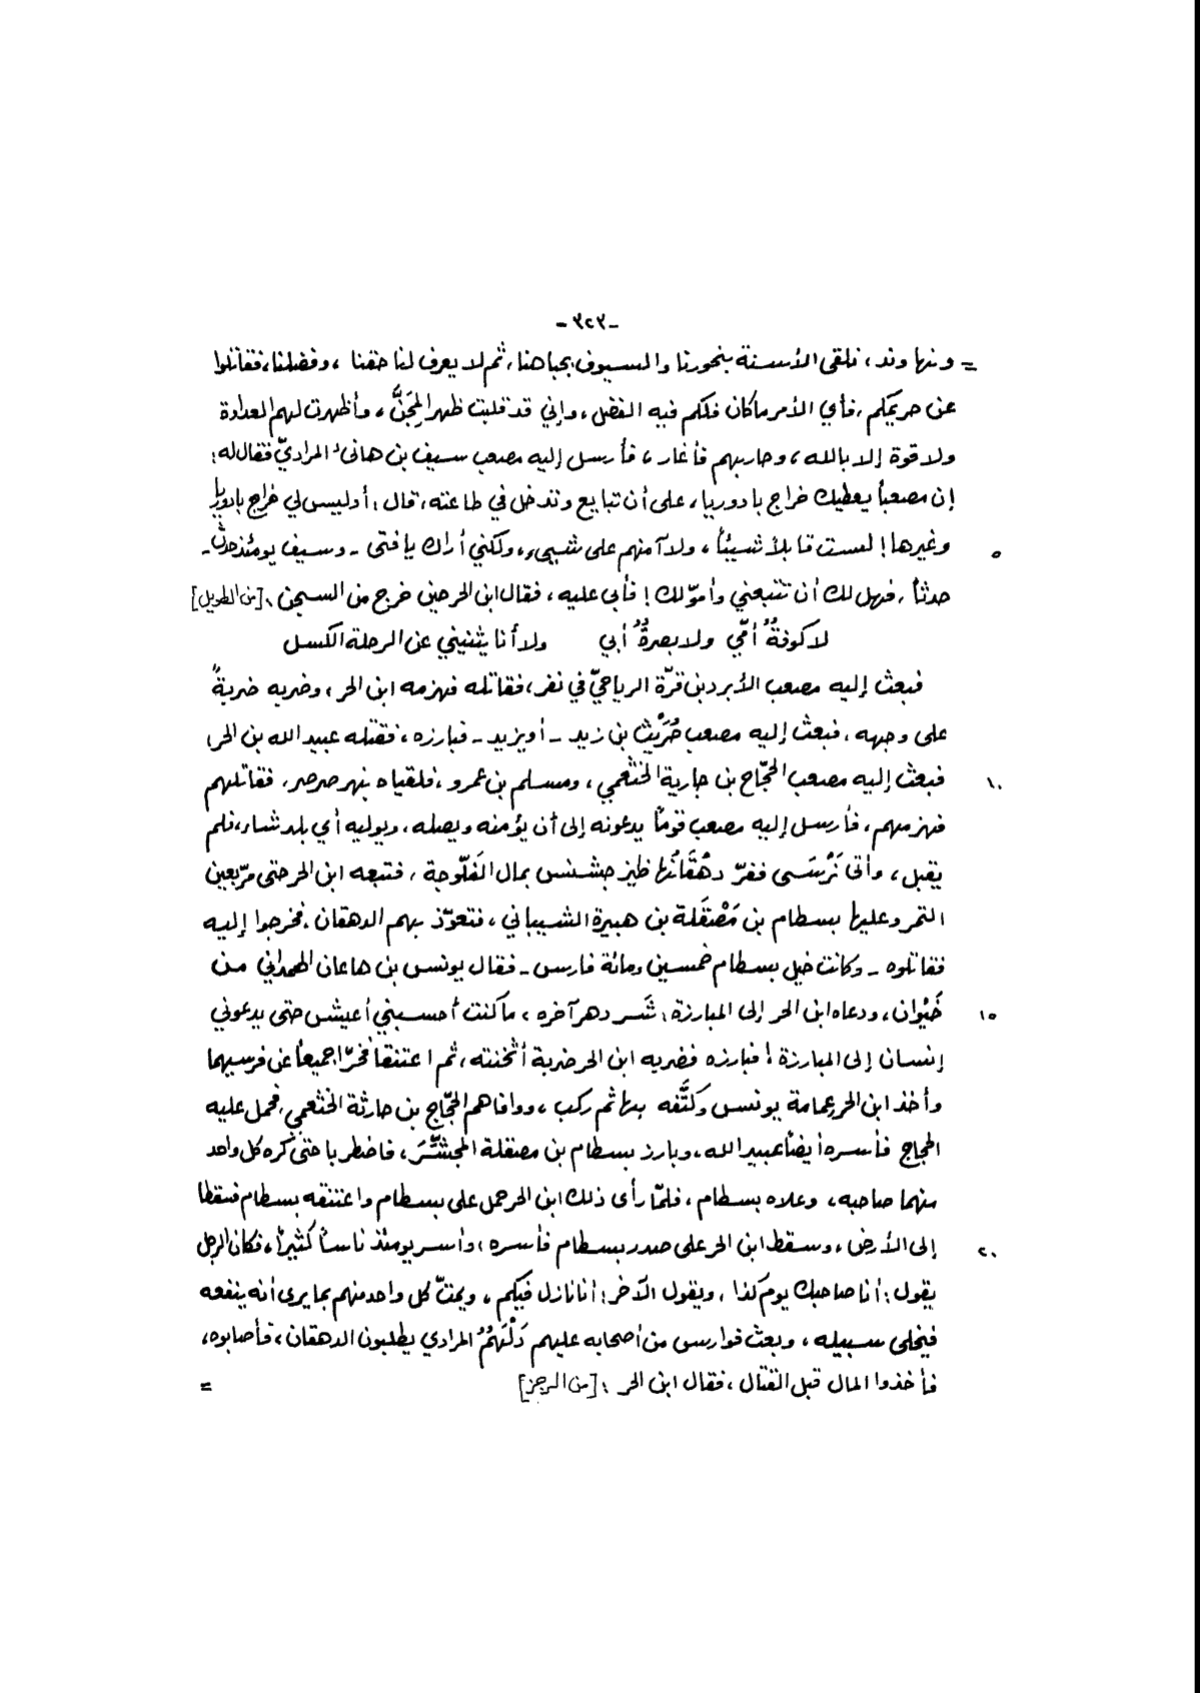 -٣٢٣-
= ونهاوند، نلقى الأسنة بنحورنا والسيوف بجباهنا، ثم لا يعرف لنا حقنا، وفضلنا، فقاتلوا
عن حريمكم، فأي الأمر ما كان فلكم فيه الفضل، وإني قد قلبت ظهر المِجَنّ، وأظهرت لهم العداوة
ولا قوة إلا بالله، وحاربهم فأغار، فأرسل إليه مصعب سيف بن هانىء المراديّ فقال له:
إن مصعباً يعطيك خراج بادوريا، على أن تبايع وتدخل في طاعته، قال: أوليس لي خراج بادوريا
وغيرها! لست قابلاً شيئاً، ولا آمنهم على شيىء، ولكني أراك يا فتى - وسيف يومئذ حدث - ٥
حدثاً، فهل لك أن تتبعني وأموّلك! فأبى عليه، فقال ابن الحر حين خرج من السجن: [من الطويل]
لا كوفةٌ أمّي ولا بصرةٌ أبي ولا أنا يثنيني عن الرحلة الكسل
فبعث إليه مصعب الأبرد بن قرّة الرياحيّ في نفر، فقاتله فهزمه ابن الحر، وضربه ضربةً
على وجهه، فبعث إليه مصعب حُرَيْثَ بن زيد - أو يزيد - فبارزه، فقتله عبيد الله بن الحر،
فبعث إليه مصعب الحجّاج بن جارية الخثعمي، ومسلم بن عمرو، فلقياه بنهر صرصر، فقاتلهم ١٠
فهزمهم، فأرسل إليه مصعب قوماً يدعونه إلى أن يؤمنه ويصله، ويوليه أي بلد شاء، فلم
يقبل، وأتى نَرْسَى ففرّ دهْقَانُها ظيزجشنس بمال الفَلّوجة، فتبعه ابن الحر حتى مرّ بعين
التمر وعليها بسطام بن مَصْقَلة بن هبيرة الشيباني، فتعوّذ بهم الدهقان، فخرجوا إليه
فقاتلوه - وكانت خيل بسطام خمسين ومائة فارس - فقال يونس بن هاعان الهمداني من
خَيْوان، ودعاه ابن الحر إلى المبارزة: شَر دهر آخره، ما كنت أحسبني أعيش حتى يدعوني ١٥
إنسان إلى المبارزة! فبارزه فضربه ابن الحر ضربة أثخنته، ثم اعتنقا فخرّا جميعاً عن فرسيهما
وأخذ ابن الحر عمامة يونس وكتَّفه بها ثم ركب، ووافاهم الحجّاج بن حارثة الخثعمي، فحمل عليه
الحجاج فأسره أيضاً عبيد الله، وبارز بسطام بن مصقلة المجشّرَ، فاضطربا حتى كره كل واحد
منهما صاحبه، وعلاه بسطام، فلمّا رأى ذلك ابن الحر حمل على بسطام واعتنقه بسطام فسقطا
إلى الأرض، وسقط ابن الحر على صدر بسطام فأسره، وأسر يومئذ ناساً كثيراً، فكان الرجل ٢٠
يقول: أنا صاحبك يوم كذا، ويقول الآخر: أنا نازل فيكم، ويمتّ كل واحد منهم بما يرى أنه ينفعه
فيخلي سبيله، وبعث فوارس من أصحابه عليهم دَلْهَمٌ المرادي يطلبون الدهقان، فأصابوه،
فأخذوا المال قبل القتال، فقال ابن الحر: [من الرجز] =